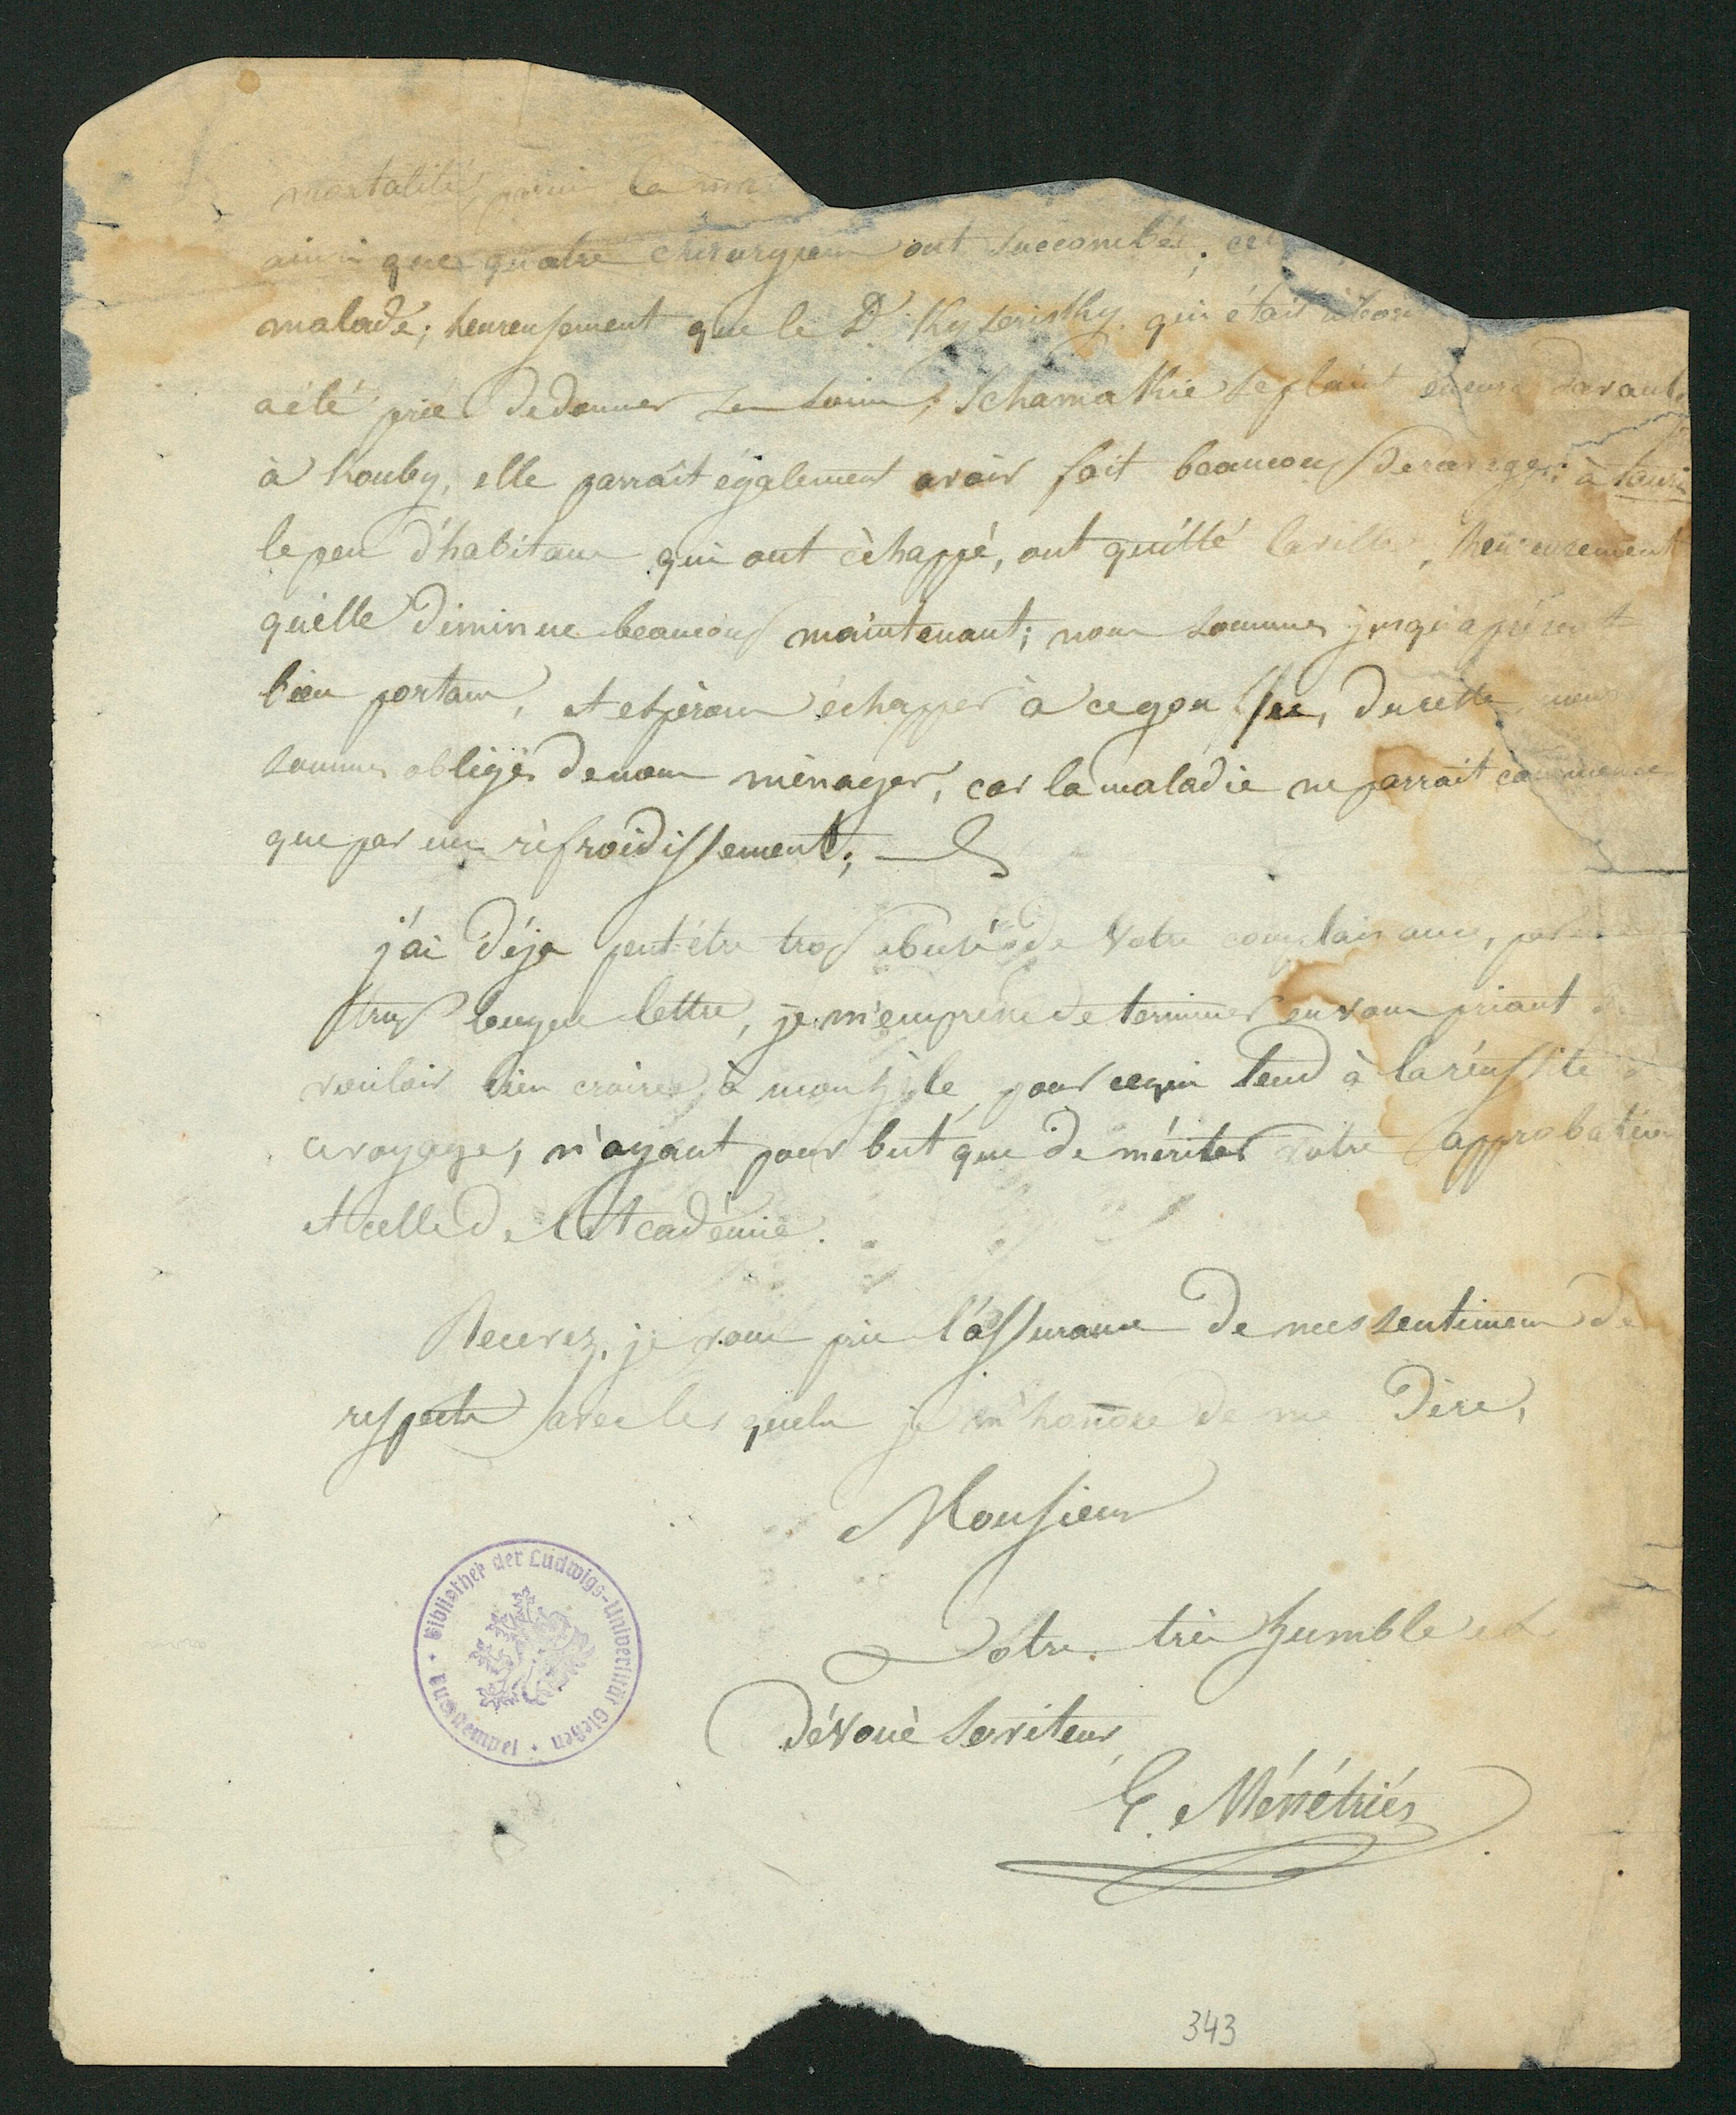 mortalité, parmi la
ainsi que quatre chirurgiens ont succombés; cet
malade; heureusement que le Dr. Kyseristky qui était
a été prié de donner ses soins; Schamakie se plaint encore davant.
à Kouby, elle parrait également avoir fait beaucoup de ravages; à Tauris
le peu d'habitans qui ont èchappé, ont quitté la ville, heureusement
qu'elle diminue beaucoup maintenant; nous sommes jusqu'a présent
bien portans, et espèrons échapper à ce gouffre, du reste, nous
sommes obligés de nous ménager, car la maladie ne parrait commencer
que par un rèfroidissement;
j'ai déja peut-être trop abusé de Votre complaisance, par
trop longue lettre, je m'empresse de terminer en vous priant de
vouloir bien croire à mon zèle pour ce qui tend à la réussite
ce voyage, n'ayant pour but que de mériter votre approbation
et celle de l'Académie.
Recevez, je vous prie l'assurance de mes sentimens de
respects avec les quels je m'honore de me dire,
Monsieur
Votre très humble et
dévoué serviteur
E. Ménétriés
Bibliothek der Ludwigs-Universität Gießen
343